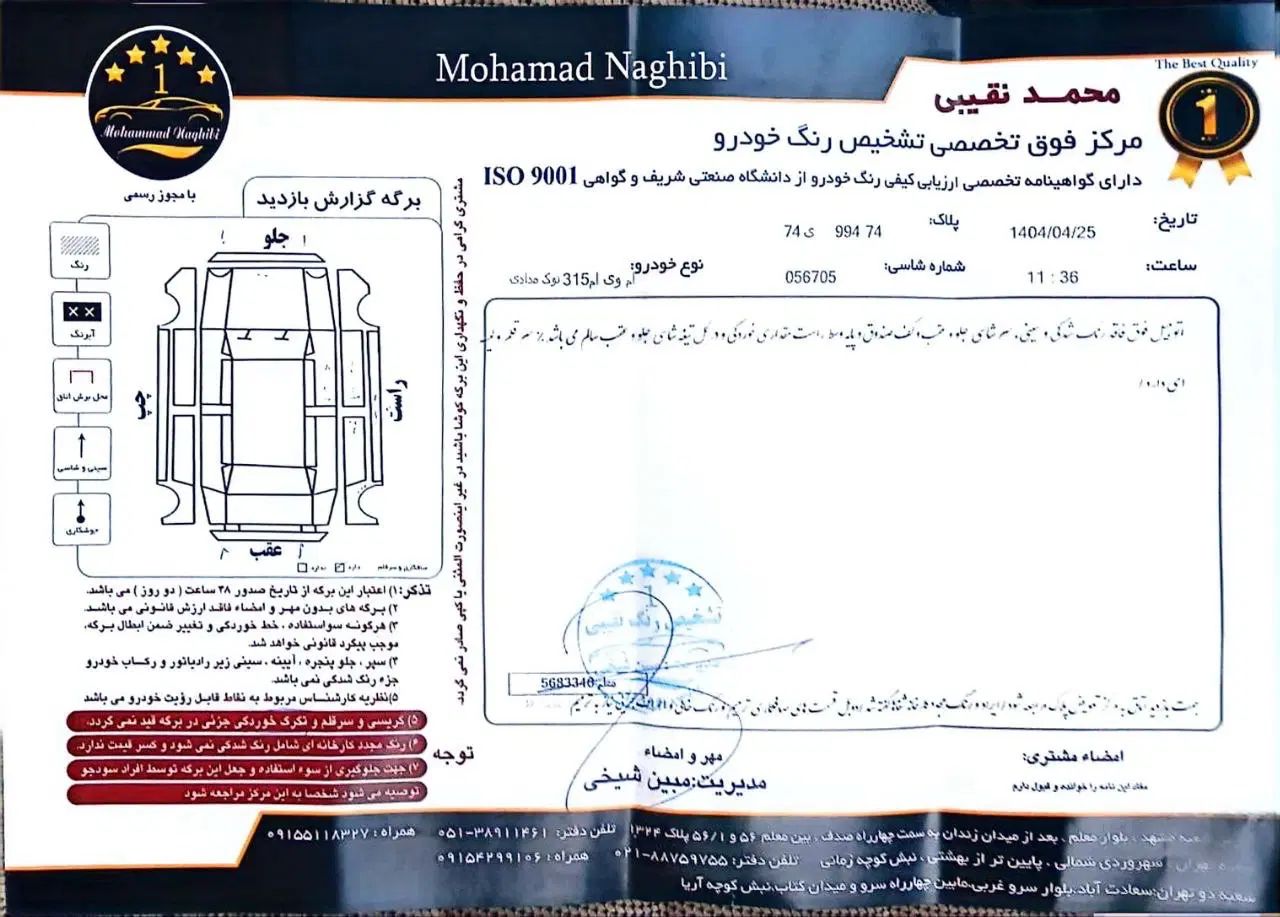 Mohamad Naghibi
The Best Quality
1
محمد نقیبی
مرکز فوق تخصصی تشخیص رنگ خودرو
دارای گواهینامه تخصصی ارزیابی کیفی رنگ خودرو از دانشگاه صنعتی شریف و گواهی ISO 9001
1
Mohammad Naghibi
با مجوز رسمی
تاریخ: 1404/04/25
پلاک: 74 994 ی 74
ساعت: 11 : 36
شماره شاسی: 056705
نوع خودرو: ام وی ام315 نوک مدادی
اتومبیل فوق فاقد رنگ شدگی و سینی، سر شاسی جلو و عقب و کف صندوق و پایه وسط راست مقداری خوردگی و در کل تیغه شاسی جلو و عقب سالم می باشد
ای دارد /
برگه گزارش بازدید
جلو
چپ
راست
عقب
رنگ
آبرنگ
محل برش اتاق
سینی و شاسی
جوشکاری
صافکاری و سرقلم دارد ندارد
مشتری گرامی در حفظ و نگهداری این برگه کوشا باشید در غیر اینصورت المثنی یا کپی صادر نمی گردد.
تذکر: ۱) اعتبار این برگه از تاریخ صدور ۴۸ ساعت ( دو روز ) می باشد.
۲) برگه های بدون مهر و امضاء فاقد ارزش قانونی می باشد.
۳) هرگونه سواستفاده ، خط خوردگی و تغییر ضمن ابطال برگه،
موجب پیگرد قانونی خواهد شد.
۴) سپر ، جلو پنجره ، آیینه ، سینی زیر رادیاتور و رکاب خودرو
جزء رنگ شدگی نمی باشد.
۵) نظریه کارشناس مربوط به نقاط قابل رؤیت خودرو می باشد
توجه
۵) گریسی و سرقلم و تکرگ خوردگی جزئی در برگه قید نمی گردد.
۶) رنگ مجدد کارخانه ای شامل رنگ شدگی نمی شود و کسر قیمت ندارد.
۷) جهت جلوگیری از سوء استفاده و جعل این برگه توسط افراد سودجو
توصیه می شود شخصا به این مرکز مراجعه شود
1
تشخیص رنگ نقیبی
5683340
مهر و امضاء
مدیریت: مبین شیخی
امضاء مشتری:
مفاد این نامه را خوانده و قبول دارم
مشهد ، بلوار معلم ، بعد از میدان زندان به سمت چهارراه صدف ، بین معلم ۵۶ و ۵۶/۱ پلاک ۱۳۲۴ تلفن دفتر: ۳۸۹۱۱۴۶۱-۰۵۱ همراه : ۰۹۱۵۵۱۱۸۳۲۷
سهروردی شمالی ، پایین تر از بهشتی ، نبش کوچه زمانی تلفن دفتر: ۸۸۷۵۹۷۵۵-۰۲۱ همراه : ۰۹۱۵۴۲۹۹۱۰۶
شعبه دو تهران: سعادت آباد، بلوار سرو غربی، مابین چهارراه سرو و میدان کتاب، نبش کوچه آریا